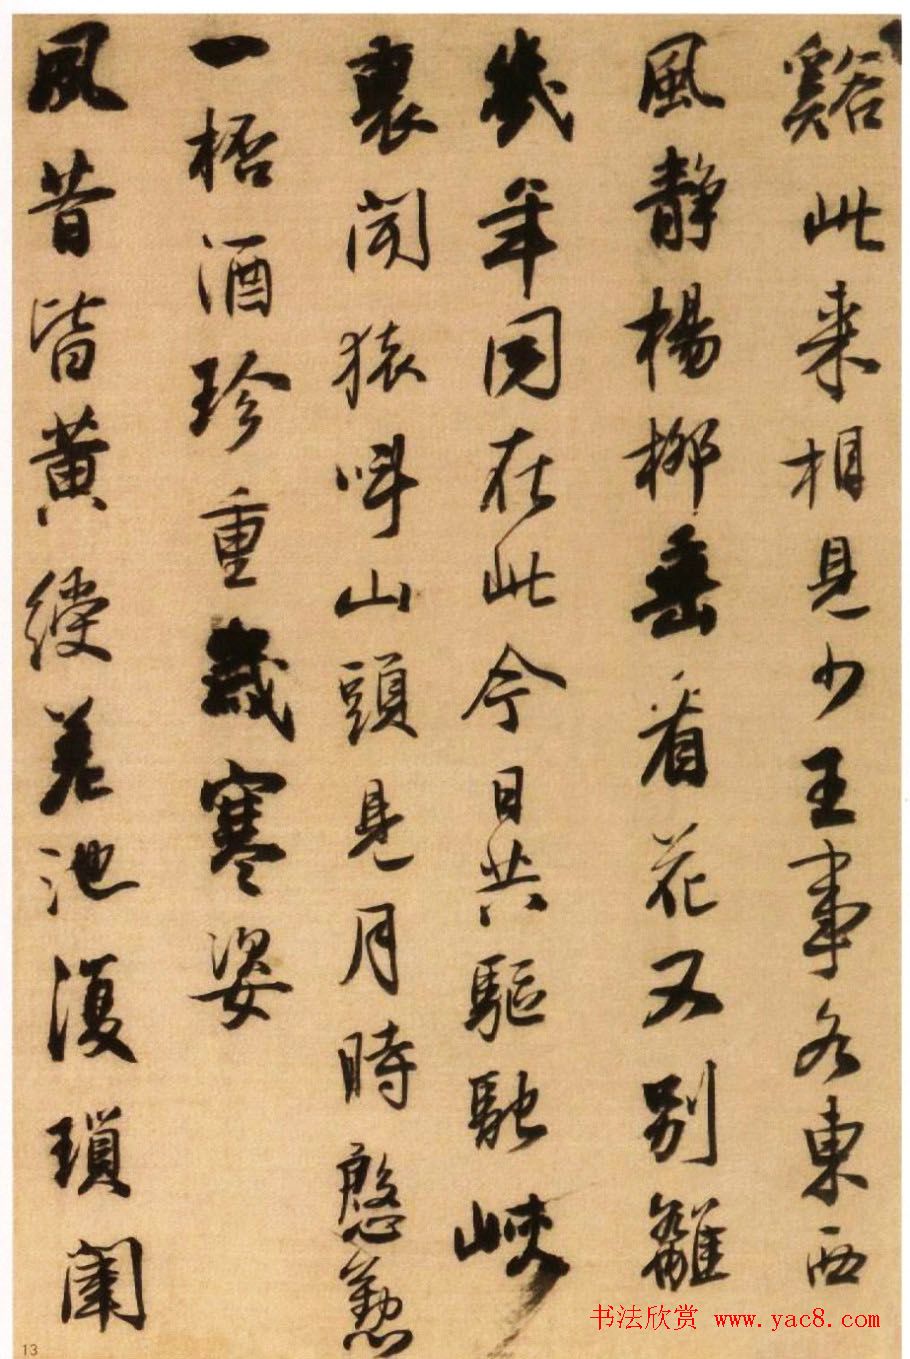 谿此来相見少王事各東西
風静楊柳垂看花又別離
幾年同在此今日共驅馳峽
裏聞猿呌山頭見月時慇懃
一桮酒珍重歲寒姿
夙昔皆黄綬差池復瑣闈
书法欣赏 www.yac8.com
13